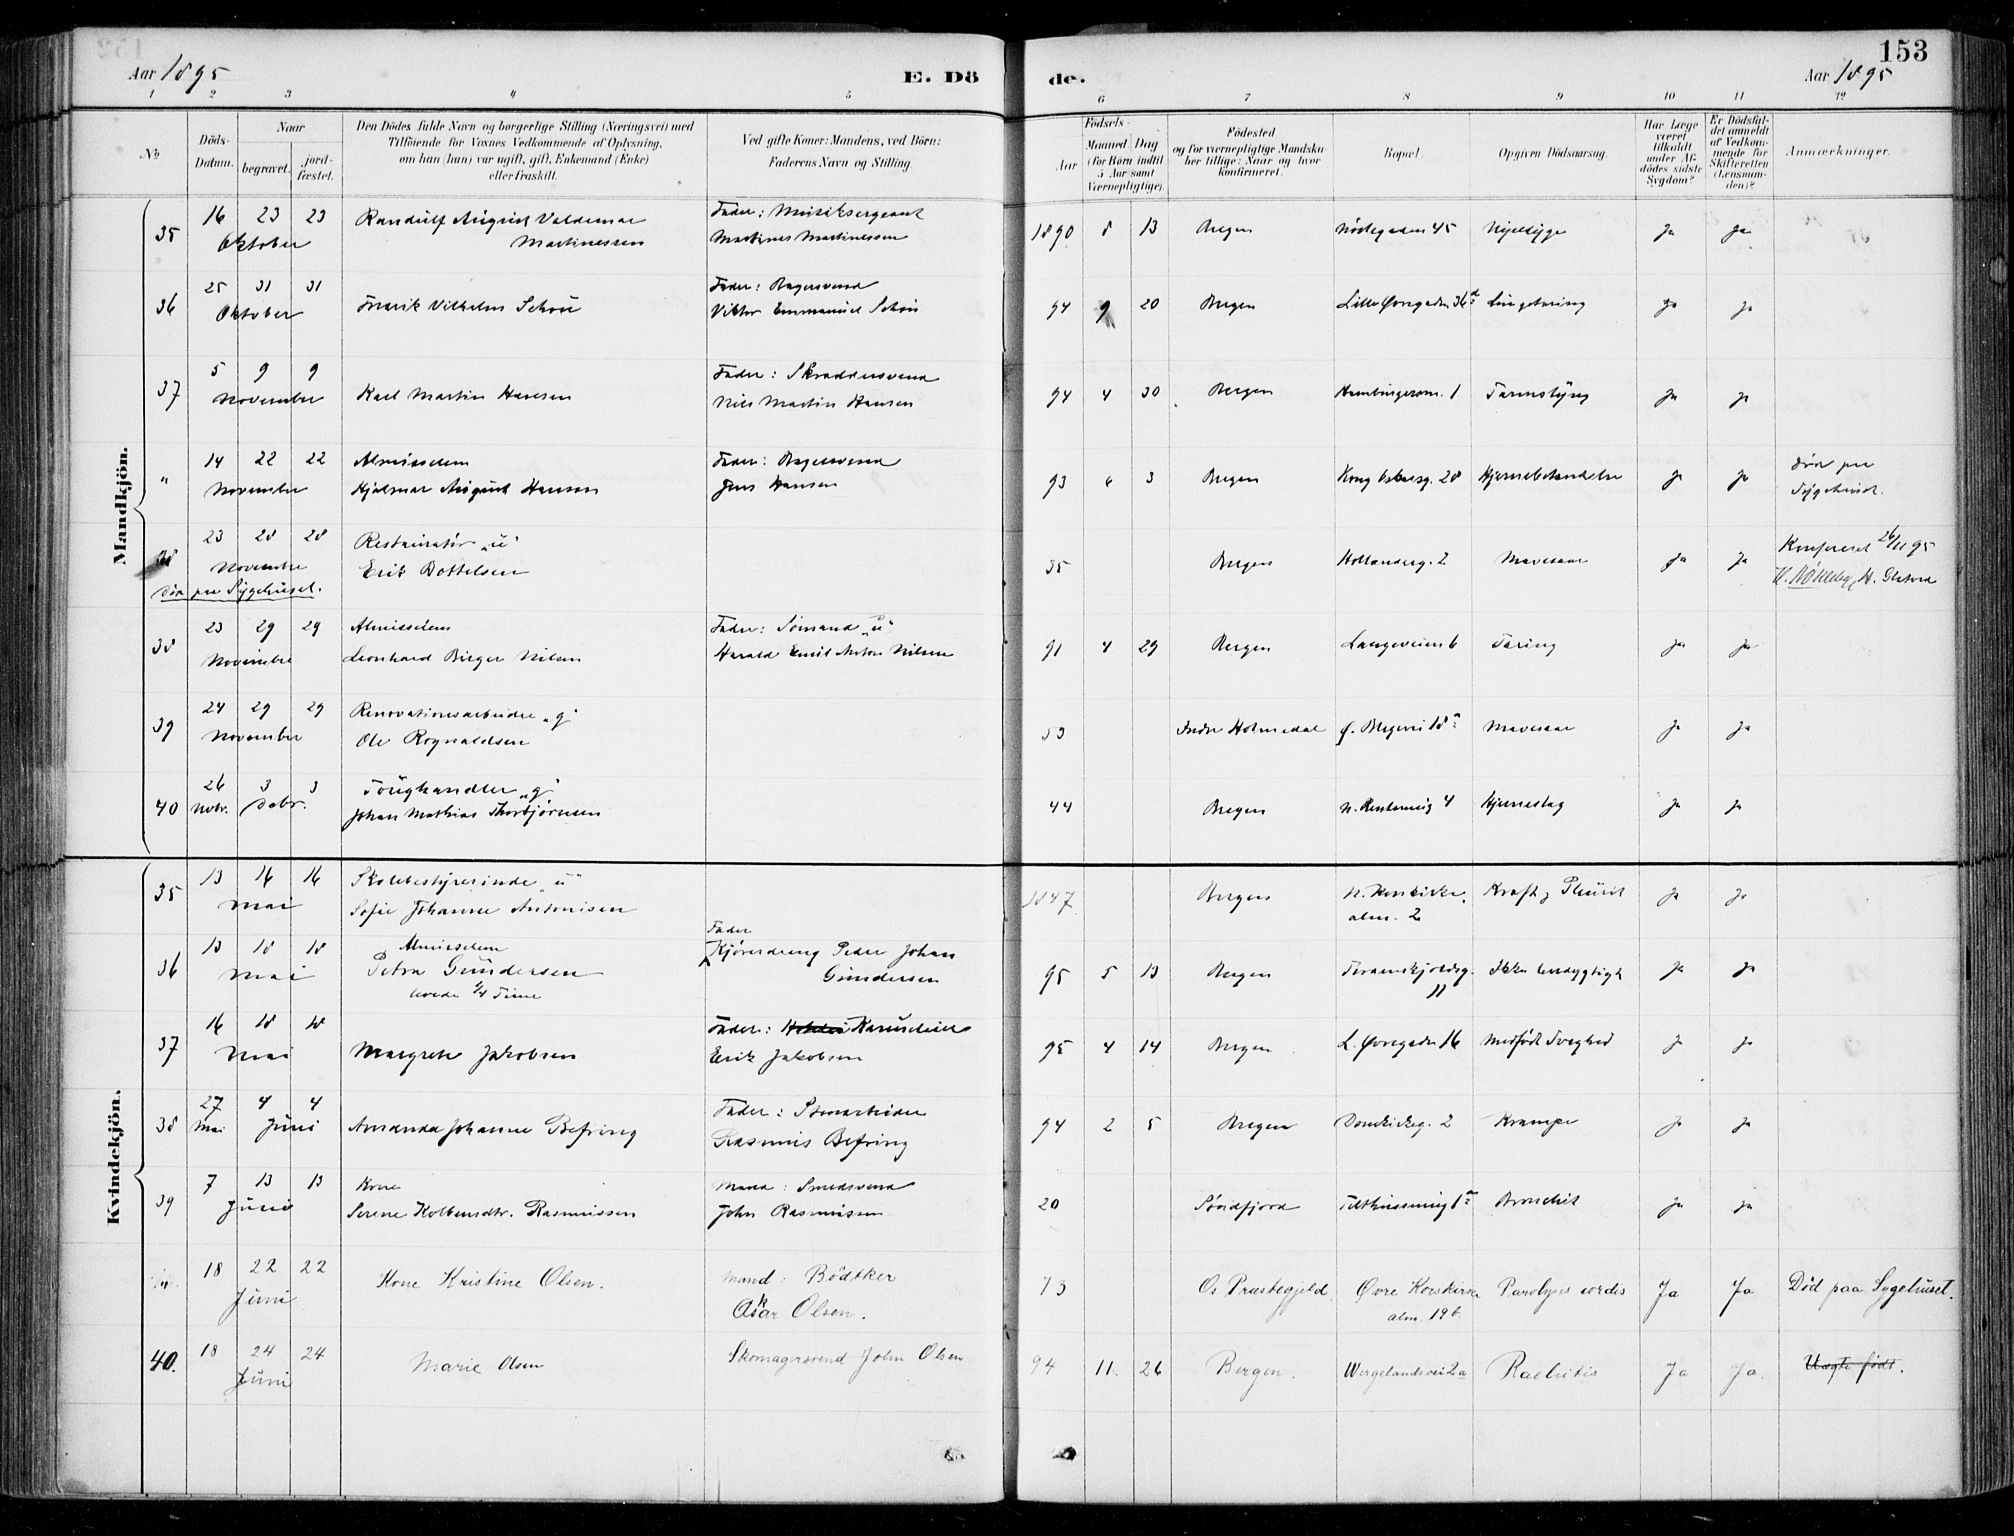 Aar 1895 E. Dö
de. Aar 1895 153
1 2 3 4 5
6 7 8 9 10 11 12
No
Döds-Datum.
Naar
begravet.
jord-fæstet.
Den Dödes fulde Navn og borgerlige Stilling (Næringsvei) med
Tilföiende for Voxnes Vedkommende af Oplysning,
om han (hun) var ugift, gift, Enkemand (Enke)
eller fraskilt.
Ved gifte Koner: Mandens, ved Börn:
Faderens Navn og Stilling
Födsels-
Aar
Maaned Dag
(for Börn indtil
5 Aar samt
Værnepligtige).
Födested
og for værnepligtige Mandska-
ber tillige: Naar og hvor
konfirmeret.
Bopæl.
Opgiven Dödsaarsag.
Har Læge
været
tilkaldt
under Af-
dödes sidste
Sygdom?
Er Dödsfal-
det anmeldt
af Vedkom-
mende for
Skifteretten
(Lensman-
den)?
Anmærkninger.
Mandkjön.
35 16 23 23 Oktober Randulf August Valdemar Martinessen Fader: Musiksergeant Martines Martinessen 1890 8 13 Bergen 45 Nyresyge Ja Ja
36 25 31 31 Oktober Fredrik Vilhelm Schou Fader: Bagersvend Viktor Emmanuel Schou 94 9 20 Bergen Lille Øvregaden 36a Lungetæring Ja Ja
37 5 9 9 November Karl Martin Hansen Fader: Skræddersvend Nils Martin Hansen 94 4 30 Bergen 1 Ja Ja
" 14 22 22 November Almisselem Hjalmar August Hansen Fader: Bagersvend Jens Hansen 93 6 3 Bergen Kong Oskarsg. 28 Hjernebetændelse Ja Ja Død paa Sygehuset.
38 23 28 28 November Restauratør "u" Erik Bottelsen 35 Bergen Hollanderg. 2 Mavesaar Ja Ja Konfereret 26/11 95
Død paa Sygehuset.
38 23 29 29 November Almisselem Leonhard Birger Nilsen Fader: Sømand "u" Harald Emil Anton Nilsen 91 4 29 Bergen Langeveien 6 Tæring Ja Ja
39 24 29 29 November Renovationsarbeider "g" Ole Rognaldsen 53 Indre Holmedal Ø. 18a Mavesaar Ja Ja
40 26 3 3 Novbr. Debr. Toughandler "g" Johan Mathias Thorbjørnsen 44 Bergen 4 Hjerneslag Ja Ja
Kvindekjön.
35 13 16 16 Mai Skolebestyrerinde "u" Sofie Johanne Antonisen 1847 Bergen N. Korskirke alm. 2 Kræft, Pleurit Ja Ja
36 13 18 18 Mai Almisselem Petra Gundersen levede 1/4 Time Fader Kjøredreng Peder Johan Gundersen 95 5 13 Bergen Tordenskjoldsg. 11 Ikke levedygtigt Ja Ja
37 16 18 18 Mai Margrete Jakobsen Fader: Erik Jakobsen 95 4 14 Bergen L. Øvregaden 16 Medfødt Svaghed Ja Ja
38 27 4 4 Mai Juni Amanda Johanne Befring Fader: Rasmus Befring 94 2 5 Bergen Domkirkeg. 2 Krampe Ja Ja
39 7 13 13 Juni Kone Serene Kolbensdtr. Rasmussen Mand: Smedsvend John Rasmussen 20 Søndfjord 1a Bronchit Ja Ja
" 18 22 22 Juni Kone Kristine Olsen. Mand: Bødtker Oskar Olsen. 73 Os Præstegjeld Øvre Korskirke alm. 19b Paralysis cordis Ja Ja Død paa Sygehuset.
40. 18 24 24 Juni Marie Olsen Skomagersvend John Olsen 94 11. 26 Bergen. Wergelandsvei 2a Rachitis Ja Ja. Uægte født.